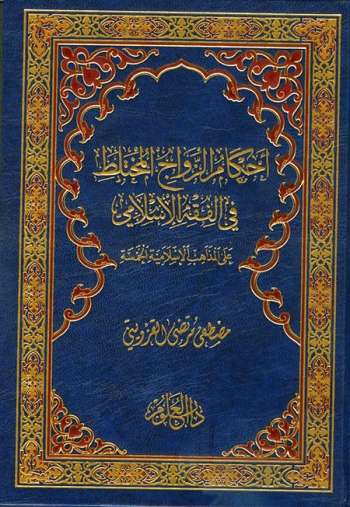 أحكام الزواج المختلط
في الفقه الإسلامي
على المذاهب الإسلامية الخمسة
مصطفى مرتضى القزويني
دار العلوم